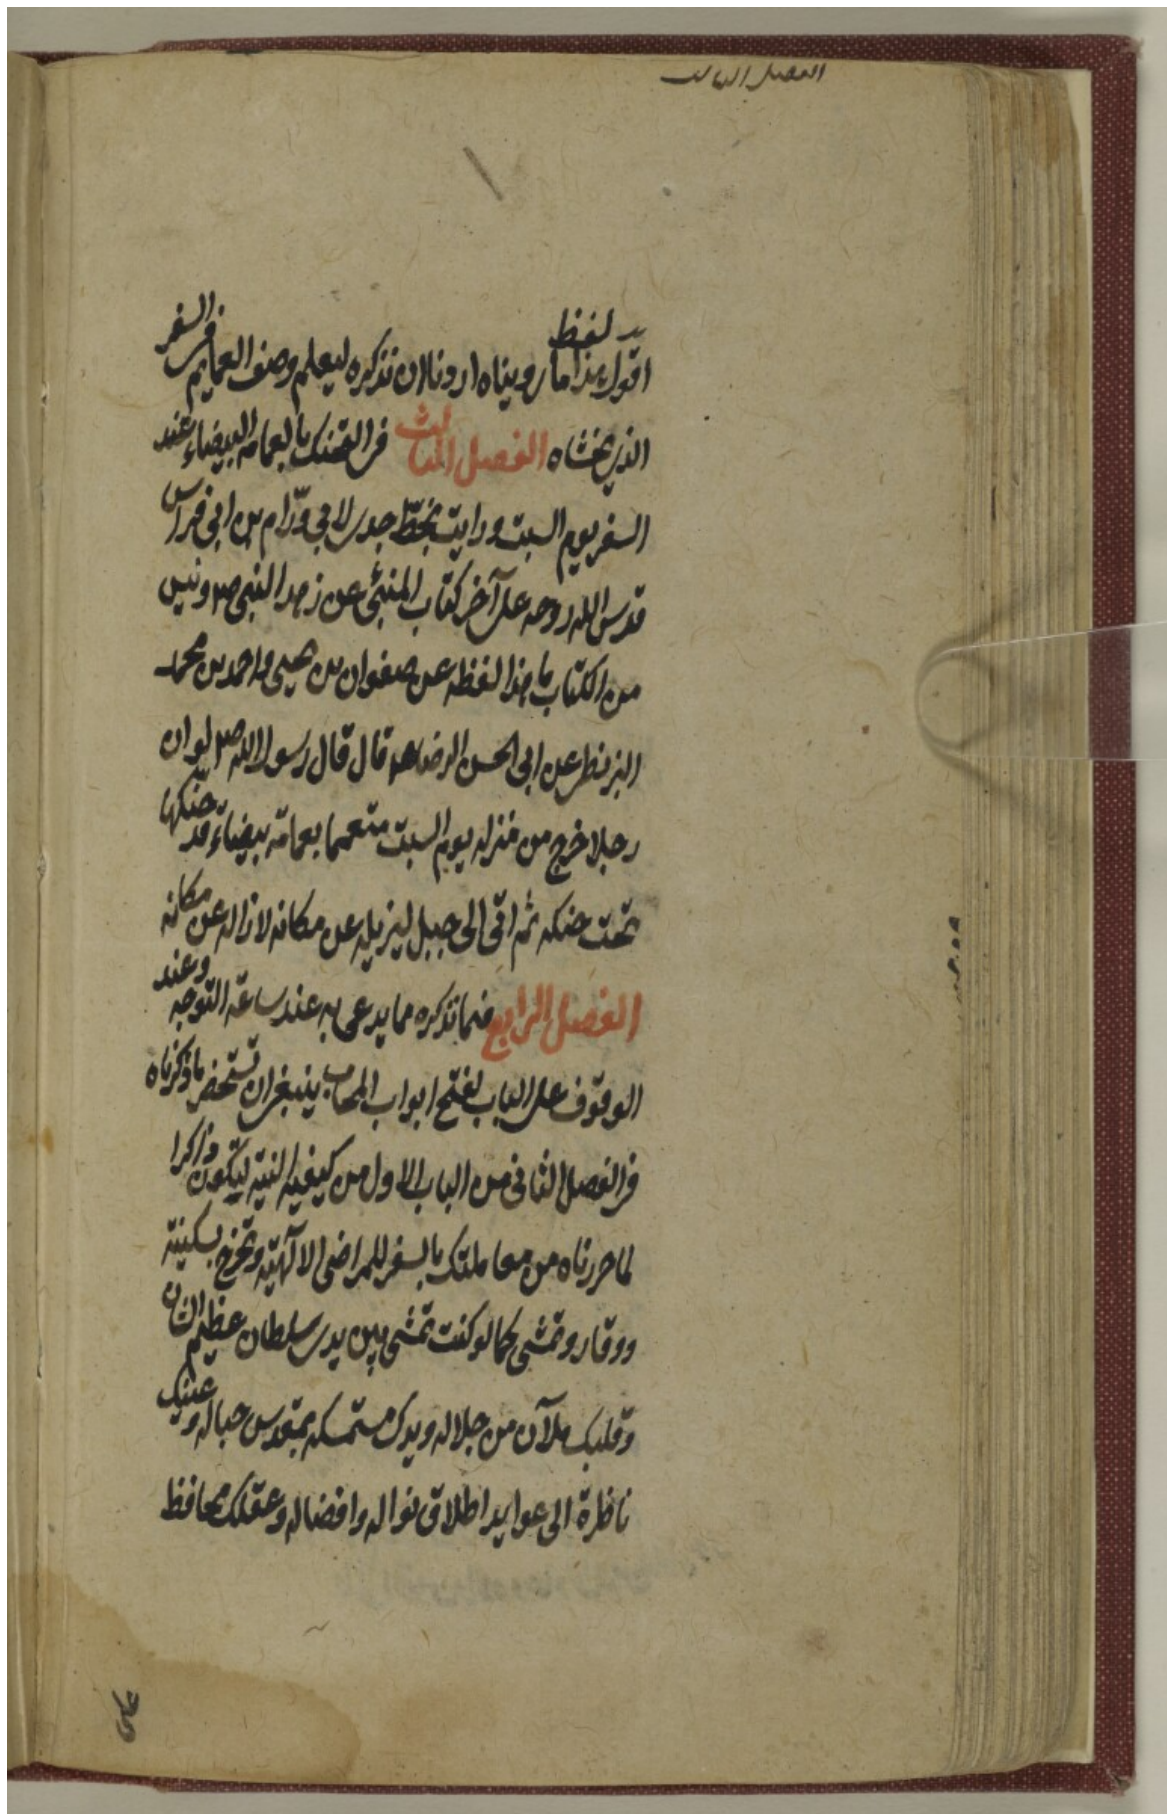 الفصل الثالث
اقول هذا لفظ ما رويناه اردنا ان نذكره ليعلم وصف العمايم فى السفر
الذى يخشاه الفصل الثالث فى التحنك بالعمامه البيضاء عند
السفر يوم السبت ورايت بخطّ جدى لامى ورّام بن ابى فراس
قدس الله روحه على آخر كتاب المنبئ عن زهد النبى ص وليس
من الكتاب ما هذا لفظه عن صفوان بن يحيى واحمد بن محمد
البزنطى عن ابى الحسن الرضا ع قال قال رسول الله ص لو ان
رجلا خرج من منزله يوم السبت متعمما بعمامة بيضاء قد حنّكها
تحت حنكه ثم اتى الى جبل ليزيله عن مكانه لازاله عن مكانه
الفصل الرابع فيما نذكره مما يدعى به عند ساعة التوجه وعند
الوقوف على الباب لفتح ابواب المحاب ينبغى ان تستحضر ما ذكرناه
فى الفصل الثانى من الباب الاول من كيفيه النيّه ليكون ذاكرا
لما حررناه من معاملتك بالسفر للمراضى الالٓهيّه وتخرج بسكينة
ووقار وتمشى كما لو كنت تمشى بين يدى سلطان عظيم الشان
وقلبك ملآن من جلاله ويدك مستمسكه بمقدس حباله وعينك
ناظرة الى عوايد اطلاق نواله وافضاله وعقلك محافظ
على